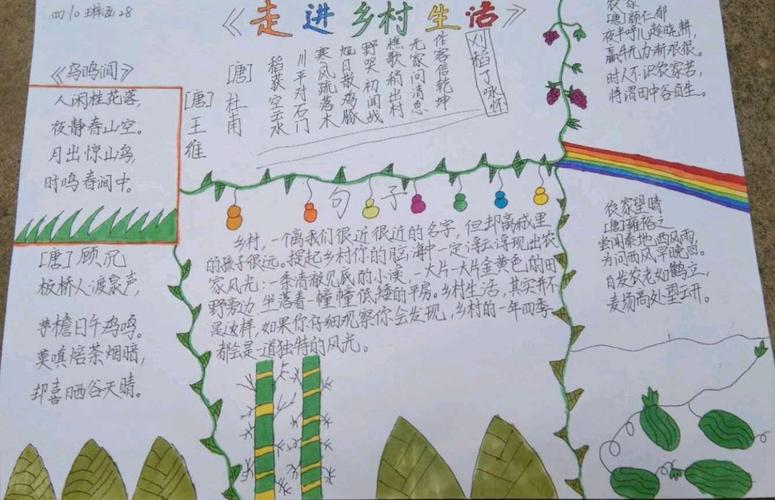 《走进乡村生活》
《鸟鸣涧》
人闲桂花落,
夜静春山空。
月出惊山鸟,
时鸣春涧中。
[唐]王维
刈稻了咏怀
[唐]杜甫
稻获空云水
川平对石门
寒风疏落木
旭日散鸡豚
野哭初闻战
樵歌稍出村
无家问消息
作客信乾坤
农家
[唐]颜仁郁
夜半呼儿趁晓耕,
羸牛无力渐艰难。
时人不识农家苦,
将谓田中谷自生。
[唐]顾况
板桥人渡泉声,
茅檐日午鸡鸣。
莫嗔焙茶烟暗,
却喜晒谷天晴。
句子
乡村,一个离我们很近很近的名字,但却离城里
的孩子很远。提起乡村你的脑海中一定浮现出农
家风光:一条清澈见底的小溪,一大片一大片金黄色的田
野旁边坐落着一幢幢低矮的平房。乡村生活,其实并不
是这样,如果你仔细观察你会发现,乡村的一年四季
都会是一道独特的风光。
农家望晴
[唐]雍裕之
尝闻秦地西风雨,
为问西风早晚回。
白发农老如鹤立,
麦场高处望云开。